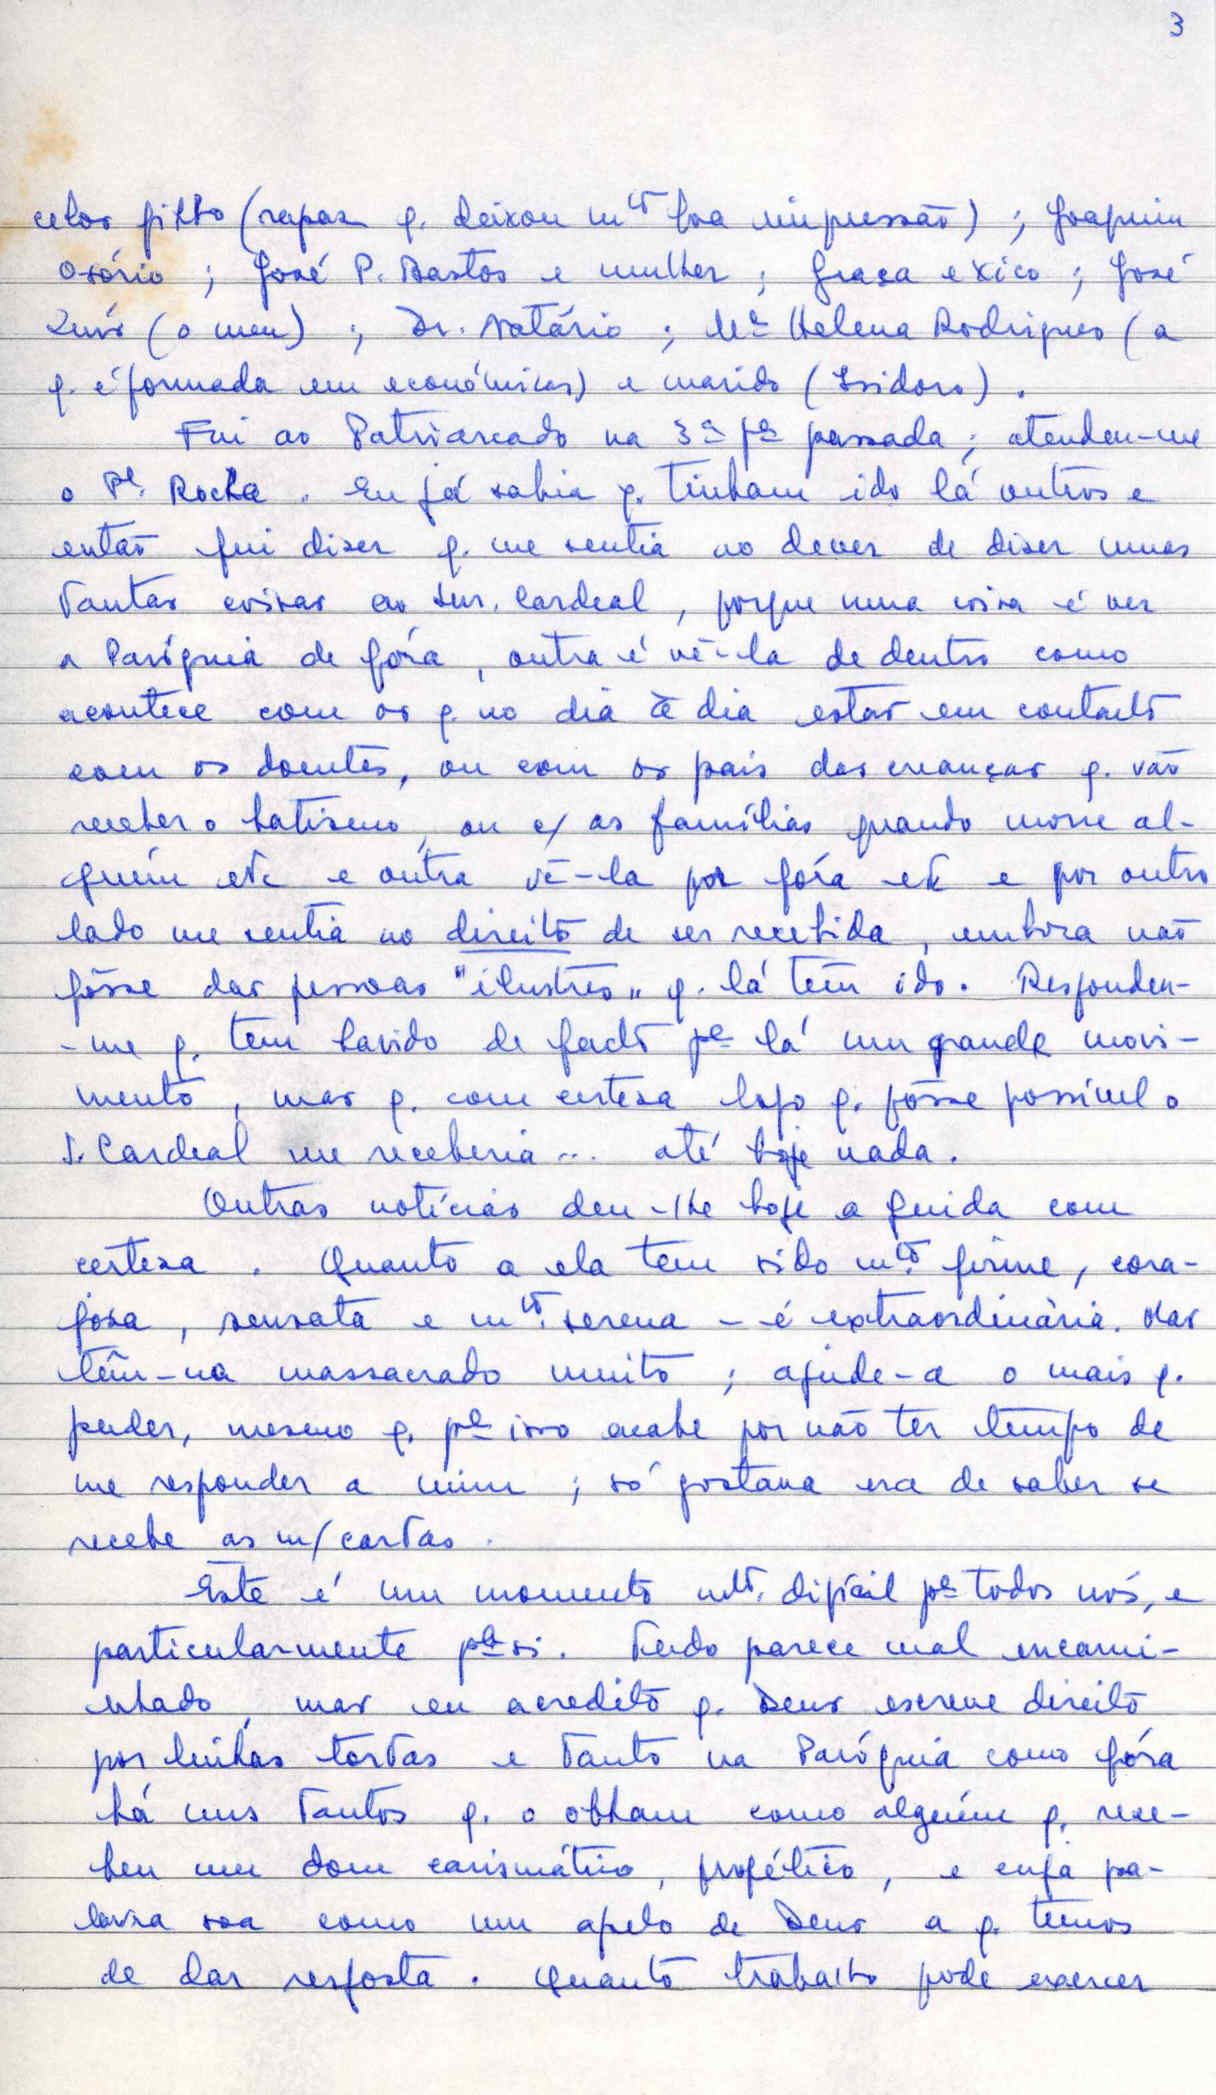 3
celos filho (rapaz q. deixou mtº boa impressão) ; Joaquim
Osório ; José P. Bastos e mulher ; Graça e Xico ; José
Luís (o meu) ; Dr. Natário ; Mª Helena Rodrigues (a
q. é formada em económicas) e marido (Isidoro).
Fui ao Patriarcado na 3ª fª passada ; atendeu-me
o Pe. Rocha. Eu já sabia q. tinham ido lá outros e
então fui dizer q. me sentia no dever de dizer umas
tantas coisas ao Snr. Cardeal, porque uma coisa é ver
a Paróquia de fóra, outra é vê-la de dentro como
acontece com os q. no dia à dia estão em contacto
com os doentes, ou com os pais das crianças q. vão
receber o batismo, ou c/ as famílias quando morre al-
guém etc e outra vê-la por fóra etc e por outro
lado me sentia no direito de ser recebida, embora não
fôsse das pessoas "ilustres" q. lá têm ido. Respondeu-
-me q. tem havido de facto pª lá um grande movi-
mento, mas q. com certeza logo q. fôsse possível o
S. Cardeal me receberia ... até hoje nada.
Outras notícias deu-lhe hoje a Guida com
certeza. Quanto a ela tem sido mtº. firme, cora-
josa, sensata e mtº. serena - é extraordinária. Mas
têm-na massacrado muito ; ajude-a o mais q.
puder, mesmo q. pª isso acabe por não ter tempo de
me responder a mim ; só gostava era de saber se
recebe as m/ cartas.
Este é um momento mtº. difícil pª todos nós, e
particularmente pª si. Tudo parece mal encami-
nhado, mas eu acredito q. Deus escreve direito
por linhas tortas e tanto na Paróquia como fóra
há uns tantos q. o olham como alguém q. rece-
beu um dom carismático, profético, e cuja pa-
lavra soa como um apelo de Deus a q. temos
de dar resposta. Quanto trabalho pode exercer